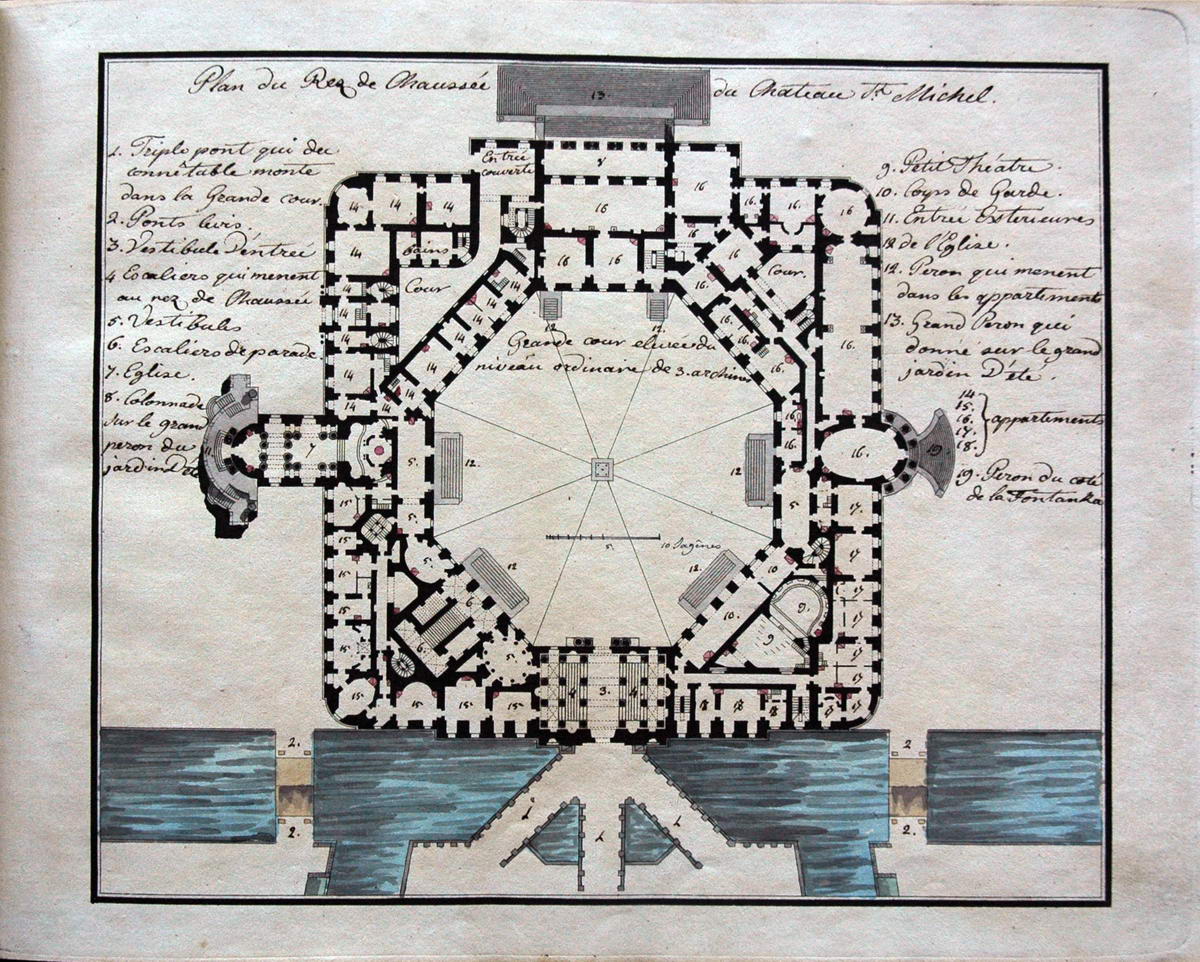 Plan du Rez de Chaussée du Chateau St. Michel.
1. Triple pont qui du
connêtable monte
dans la Grande cour.
2. Ponts levis.
3. Vestibule D'entrée
4 Escaliers qui menent
au rez de Chaussée
5. Vestibules
6. Escaliers de parade
7. Eglise.
8. Colonnade
sur le grand
peron du
jardin d'été
9. Petit Théatre.
10. Corps de Garde.
11. Entrée Exterieures
de l'Eglise.
12. Peron qui menent
dans les appartements
13. Grand Peron qui
donné sur le grand
jardin D'été.
14.
15.
16. appartements
17.
18.
19. Peron du coté
de la Fontanka
13.
Entrée
couverte
8
16
14
14
14
16
16
16
16
14
bains
16
16
16
16
Cour
Cour.
14
14
12
12.
Grande cour elevée du
niveau ordinaire de 3. archines
16.
14
14
7
5.
12.
12
16.
19
15.
5.
5.
17.
10 Sagênes
5.
15
5.
12
12.
10
17
15
6
10.
9.
9
17
15
6.
5.
15
15
15
15
4
3.
4
18
18
18
17
2.
2
2.
2.
1
1
1